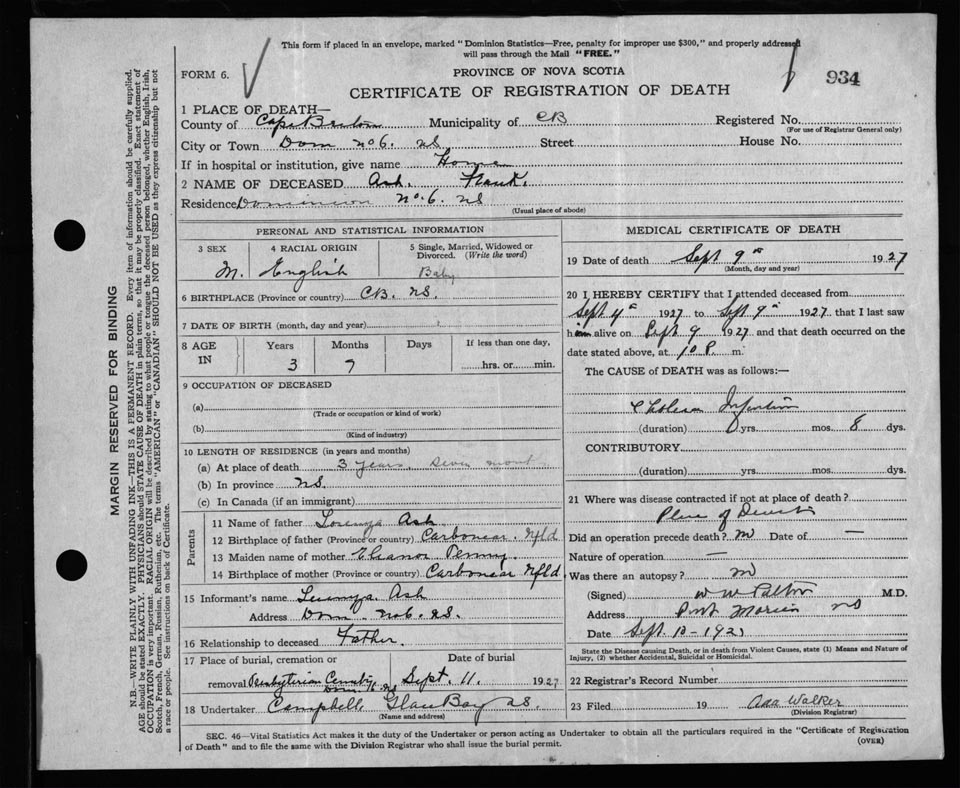 This form if placed in an envelope, marked "Dominion Statistics—Free, penalty for improper use $300," and properly addressed
will pass through the Mail "FREE."
FORM 6.
PROVINCE OF NOVA SCOTIA
934
CERTIFICATE OF REGISTRATION OF DEATH
1 PLACE OF DEATH—
County of Cape Breton Municipality of CB Registered No.
(For use of Registrar General only)
City or Town Dom No 6. NS Street House No.
If in hospital or institution, give name Home
2 NAME OF DECEASED Ash. Frank.
Residence Dominion No. 6. NS
(Usual place of abode)
PERSONAL AND STATISTICAL INFORMATION
3 SEX
4 RACIAL ORIGIN
5 Single, Married, Widowed or
Divorced. (Write the word)
M. English Baby
6 BIRTHPLACE (Province or country) CB. NS.
7 DATE OF BIRTH (month, day and year)
8 AGE
IN
Years Months Days If less than one day,
3 7 hrs. or min.
9 OCCUPATION OF DECEASED
(a)
(Trade or occupation or kind of work)
(b)
(Kind of industry)
10 LENGTH OF RESIDENCE (in years and months)
(a) At place of death 3 years. seven mont
(b) In province NS.
(c) In Canada (if an immigrant)
Parents
11 Name of father Lorenza Ash
12 Birthplace of father (Province or country) Carbonear. Nfld.
13 Maiden name of mother Eleanor Penny.
14 Birthplace of mother (Province or country) Carbonear Nfld
15 Informant's name Lorenza Ash
Address Dom. No 6. NS.
16 Relationship to deceased Father.
17 Place of burial, cremation or Date of burial
removal Presbyterian Cemetry Sept. 11. 1927
Dom NS
18 Undertaker Campbell Glace Bay NS.
(Name and address)
MEDICAL CERTIFICATE OF DEATH
19 Date of death Sept 9th 1927
(Month, day and year)
20 I HEREBY CERTIFY that I attended deceased from
Sept 4th 1927 to Sept 9th 1927 that I last saw
him alive on Sept 9 1927 and that death occurred on the
date stated above, at 10 P. m.
The CAUSE of DEATH was as follows:—
Cholera Infantum
(duration) yrs. mos. 8 dys.
CONTRIBUTORY
(duration) yrs. mos. dys.
21 Where was disease contracted if not at place of death?
Place of Death
Did an operation precede death? no Date of —
Nature of operation —
Was there an autopsy? no
(Signed) W W Patton M.D.
Address Port Morien NS
Date Sept.
State the Disease causing Death, or in death from Violent Causes, state (1) Means and Nature of
Injury, (2) whether Accidental, Suicidal or Homicidal.
22 Registrar's Record Number
23 Filed 19 Ada Walker
(Division Registrar)
SEC. 46—Vital Statistics Act makes it the duty of the Undertaker or person acting as Undertaker to obtain all the particulars required in the "Certificate of Registration
of Death" and to file the same with the Division Registrar who shall issue the burial permit.
(OVER)
MARGIN RESERVED FOR BINDING
N.B.—WRITE PLAINLY, WITH UNFADING INK—THIS IS A PERMANENT RECORD. Every item of information should be carefully supplied.
AGE should be stated EXACTLY. PHYSICIANS should STATE CAUSE OF DEATH in plain terms, so that it may be properly classified. Exact statement of
OCCUPATION is very important. RACIAL ORIGIN will be described by stating to what people or tongue the deceased person belonged, whether English, Irish,
Scotch, French, German, Russian, Ruthenian, etc. The terms "AMERICAN" or "CANADIAN" SHOULD NOT BE USED as they express citizenship but not
a race or people. See instructions on back of Certificate.